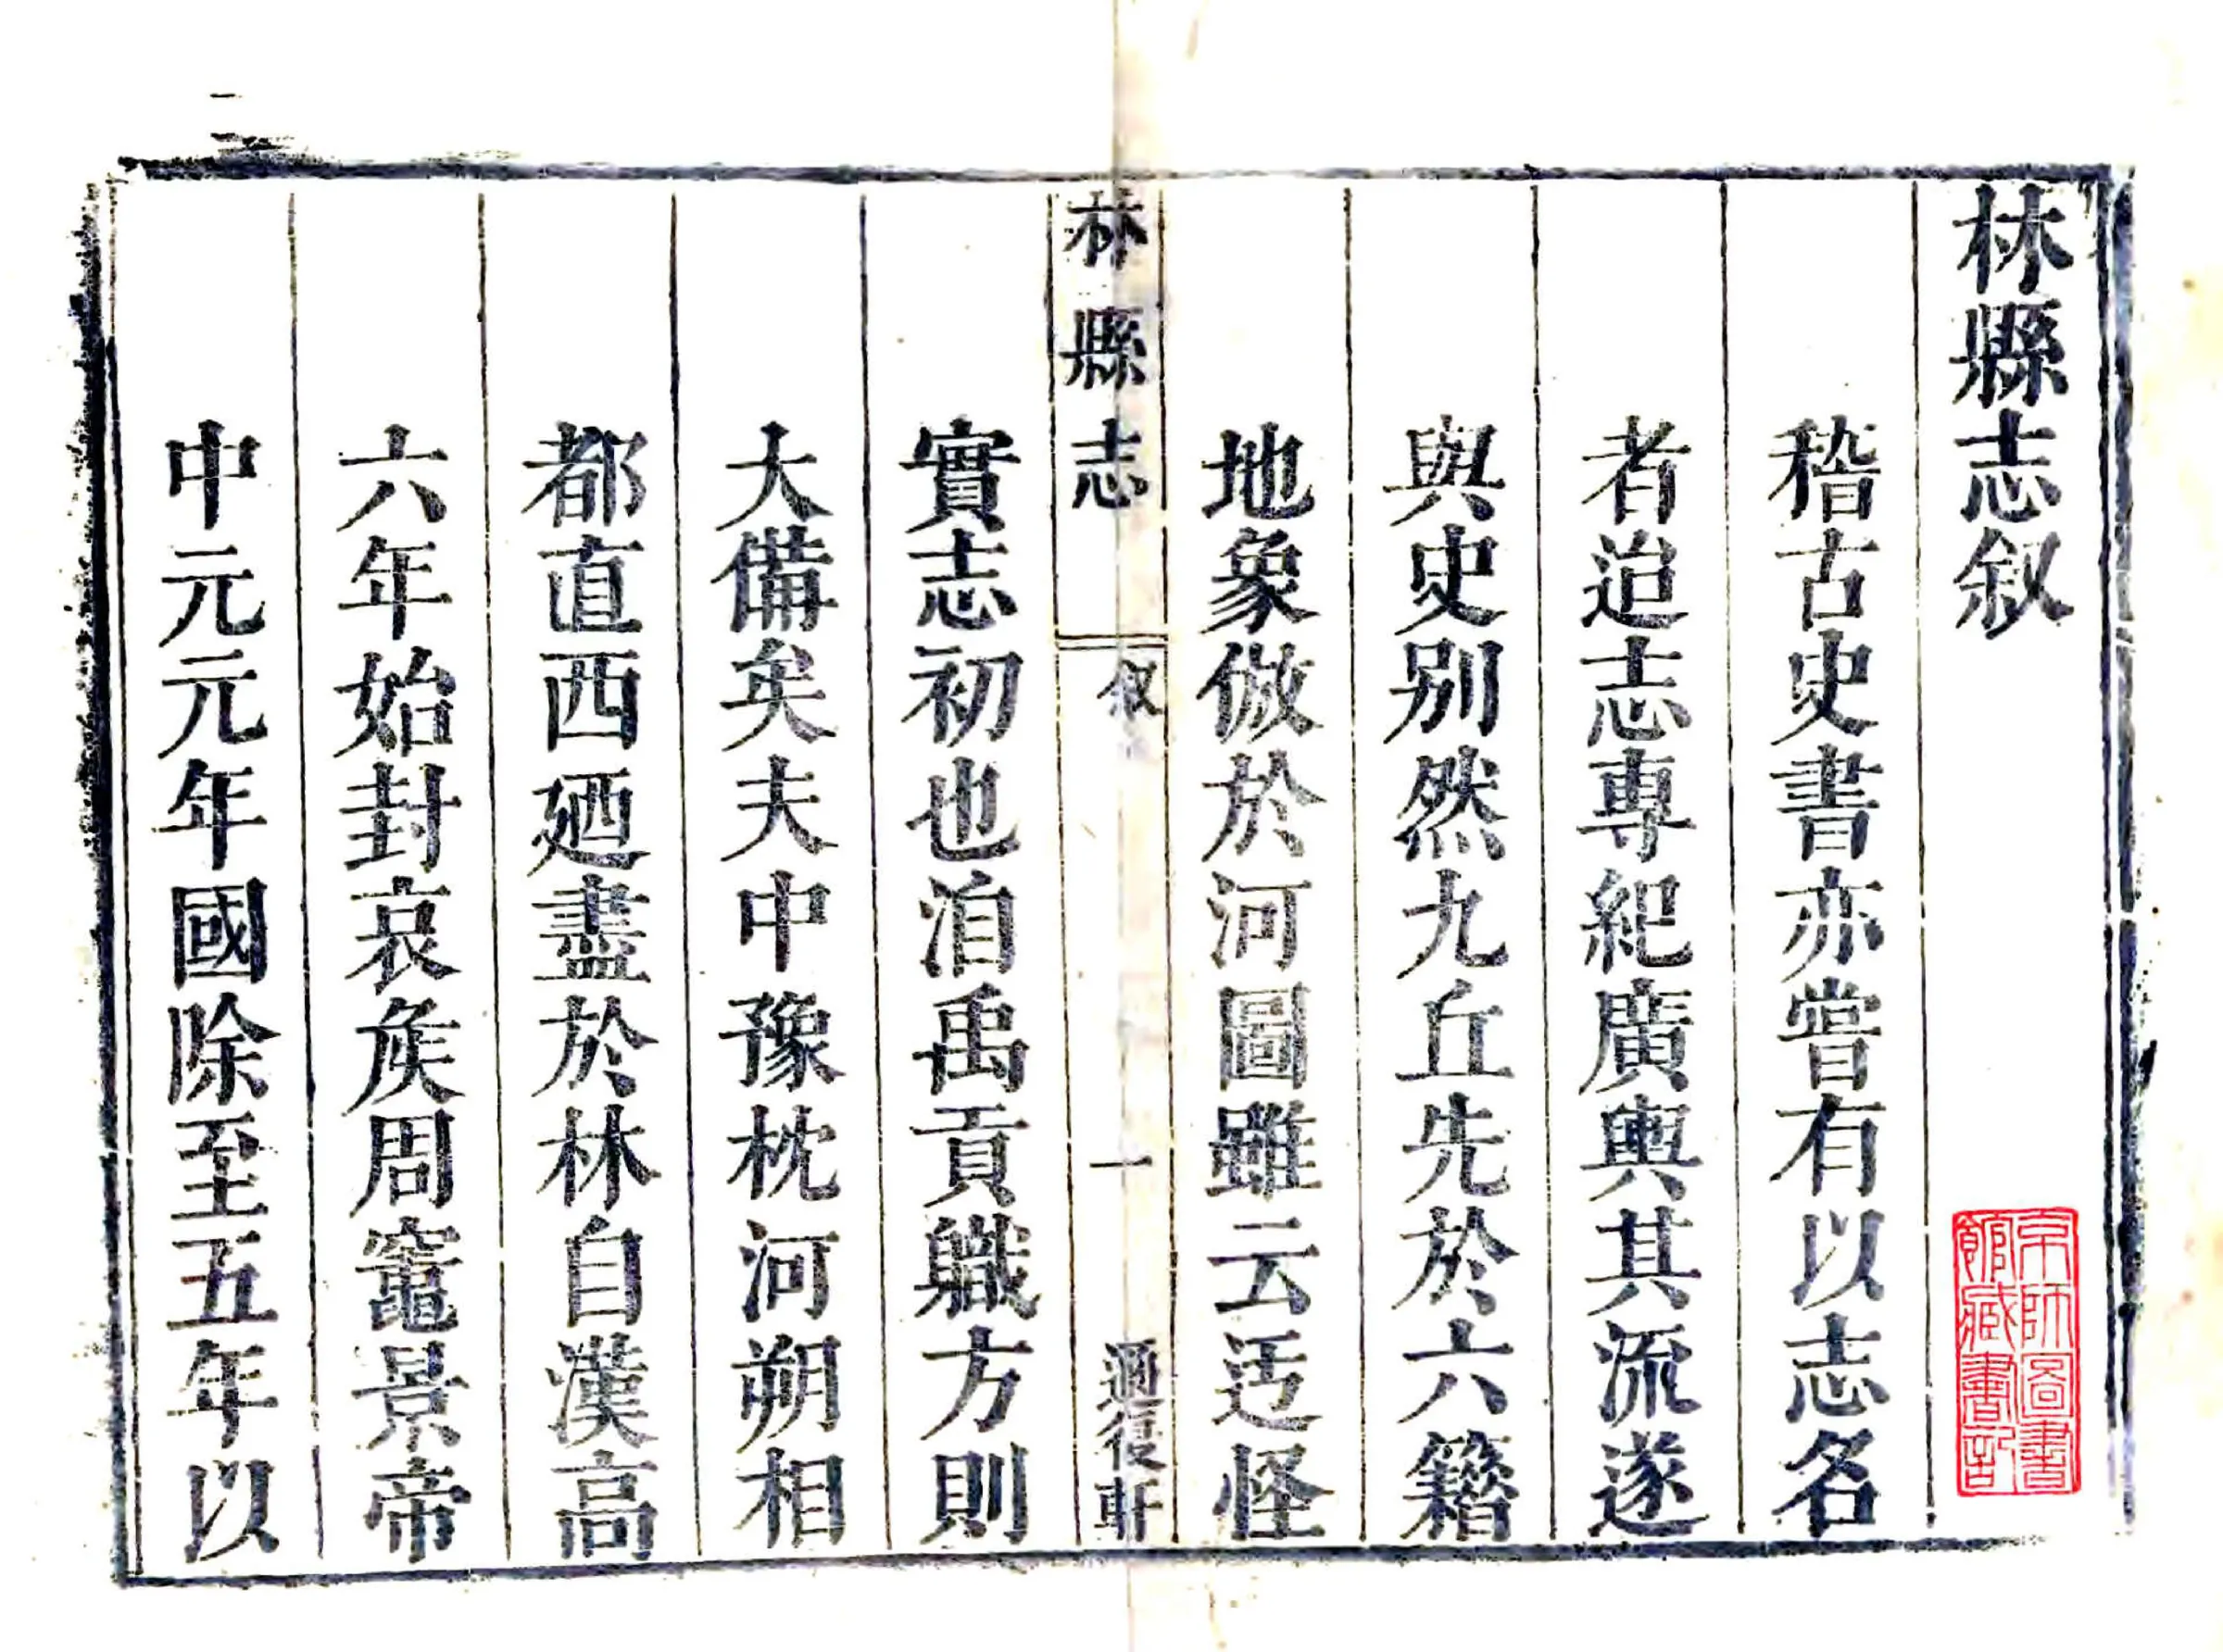 林縣志叙
稽古史書亦嘗有以志名
者迨志專紀廣輿其流遂
與史別然九丘先於六籍
地象倣於河圖雖云迃怪
林縣志
叙
一
適復軒
實志初也洎禹貢職方則
大備矣夫中豫枕河朔相
都直西廼盡於林自漢高
六年始封哀矦周竈景帝
中元元年國除至五年以
京師圖書
館藏書記